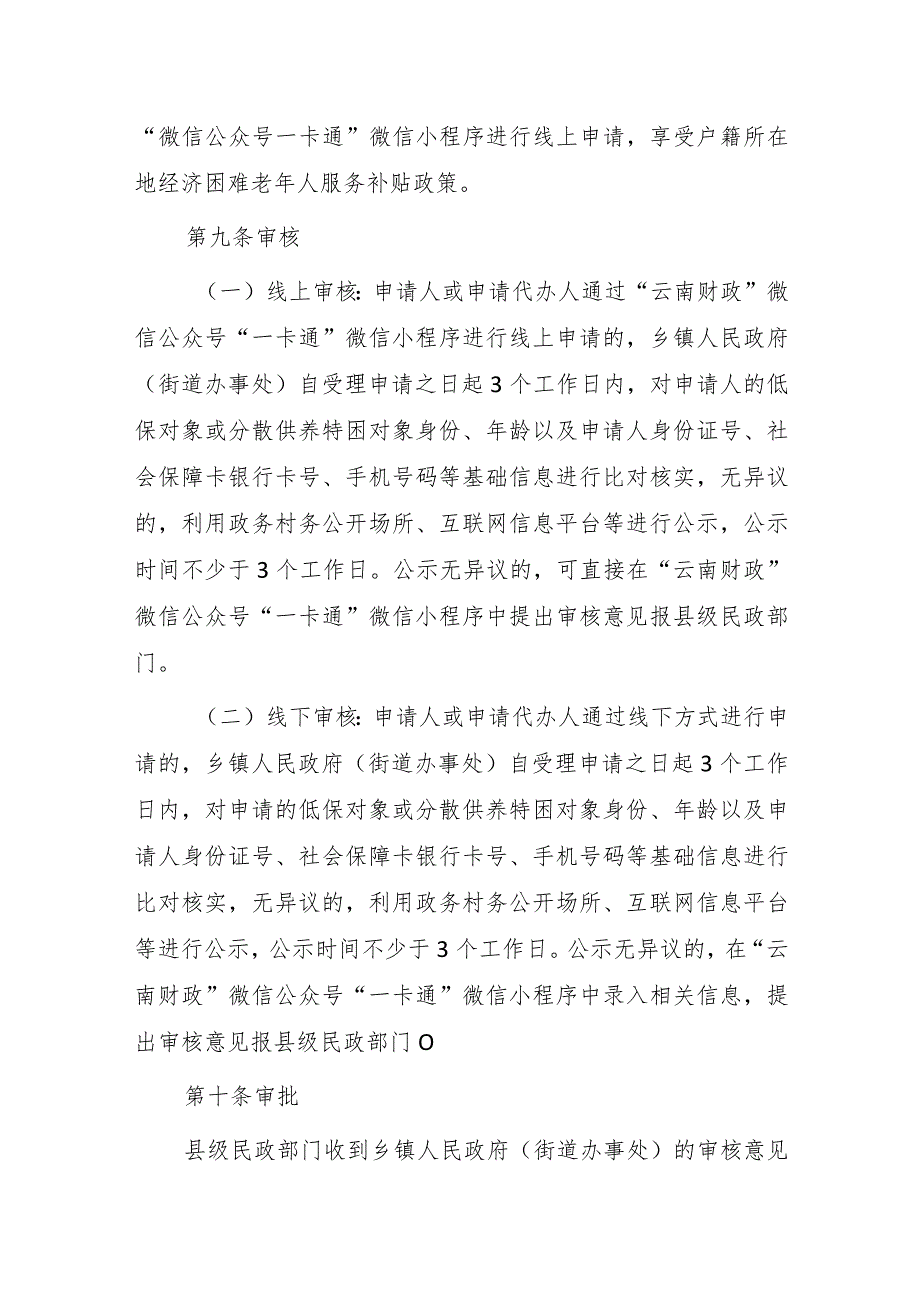 “微信公众号一卡通”微信小程序进行线上申请，享受户籍所在
地经济困难老年人服务补贴政策。
第九条审核
（一）线上审核：申请人或申请代办人通过“云南财政”微
信公众号“一卡通”微信小程序进行线上申请的，乡镇人民政府
（街道办事处）自受理申请之日起 3 个工作日内，对申请人的低
保对象或分散供养特困对象身份、年龄以及申请人身份证号、社
会保障卡银行卡号、手机号码等基础信息进行比对核实，无异议
的，利用政务村务公开场所、互联网信息平台等进行公示，公示
时间不少于 3 个工作日。公示无异议的，可直接在“云南财政”
微信公众号“一卡通”微信小程序中提出审核意见报县级民政部
门。
（二）线下审核：申请人或申请代办人通过线下方式进行申
请的，乡镇人民政府（街道办事处）自受理申请之日起 3 个工作
日内，对申请的低保对象或分散供养特困对象身份、年龄以及申
请人身份证号、社会保障卡银行卡号、手机号码等基础信息进行
比对核实，无异议的，利用政务村务公开场所、互联网信息平台
等进行公示，公示时间不少于 3 个工作日。公示无异议的，在“云
南财政”微信公众号“一卡通”微信小程序中录入相关信息，提
出审核意见报县级民政部门 O
第十条审批
县级民政部门收到乡镇人民政府（街道办事处）的审核意见